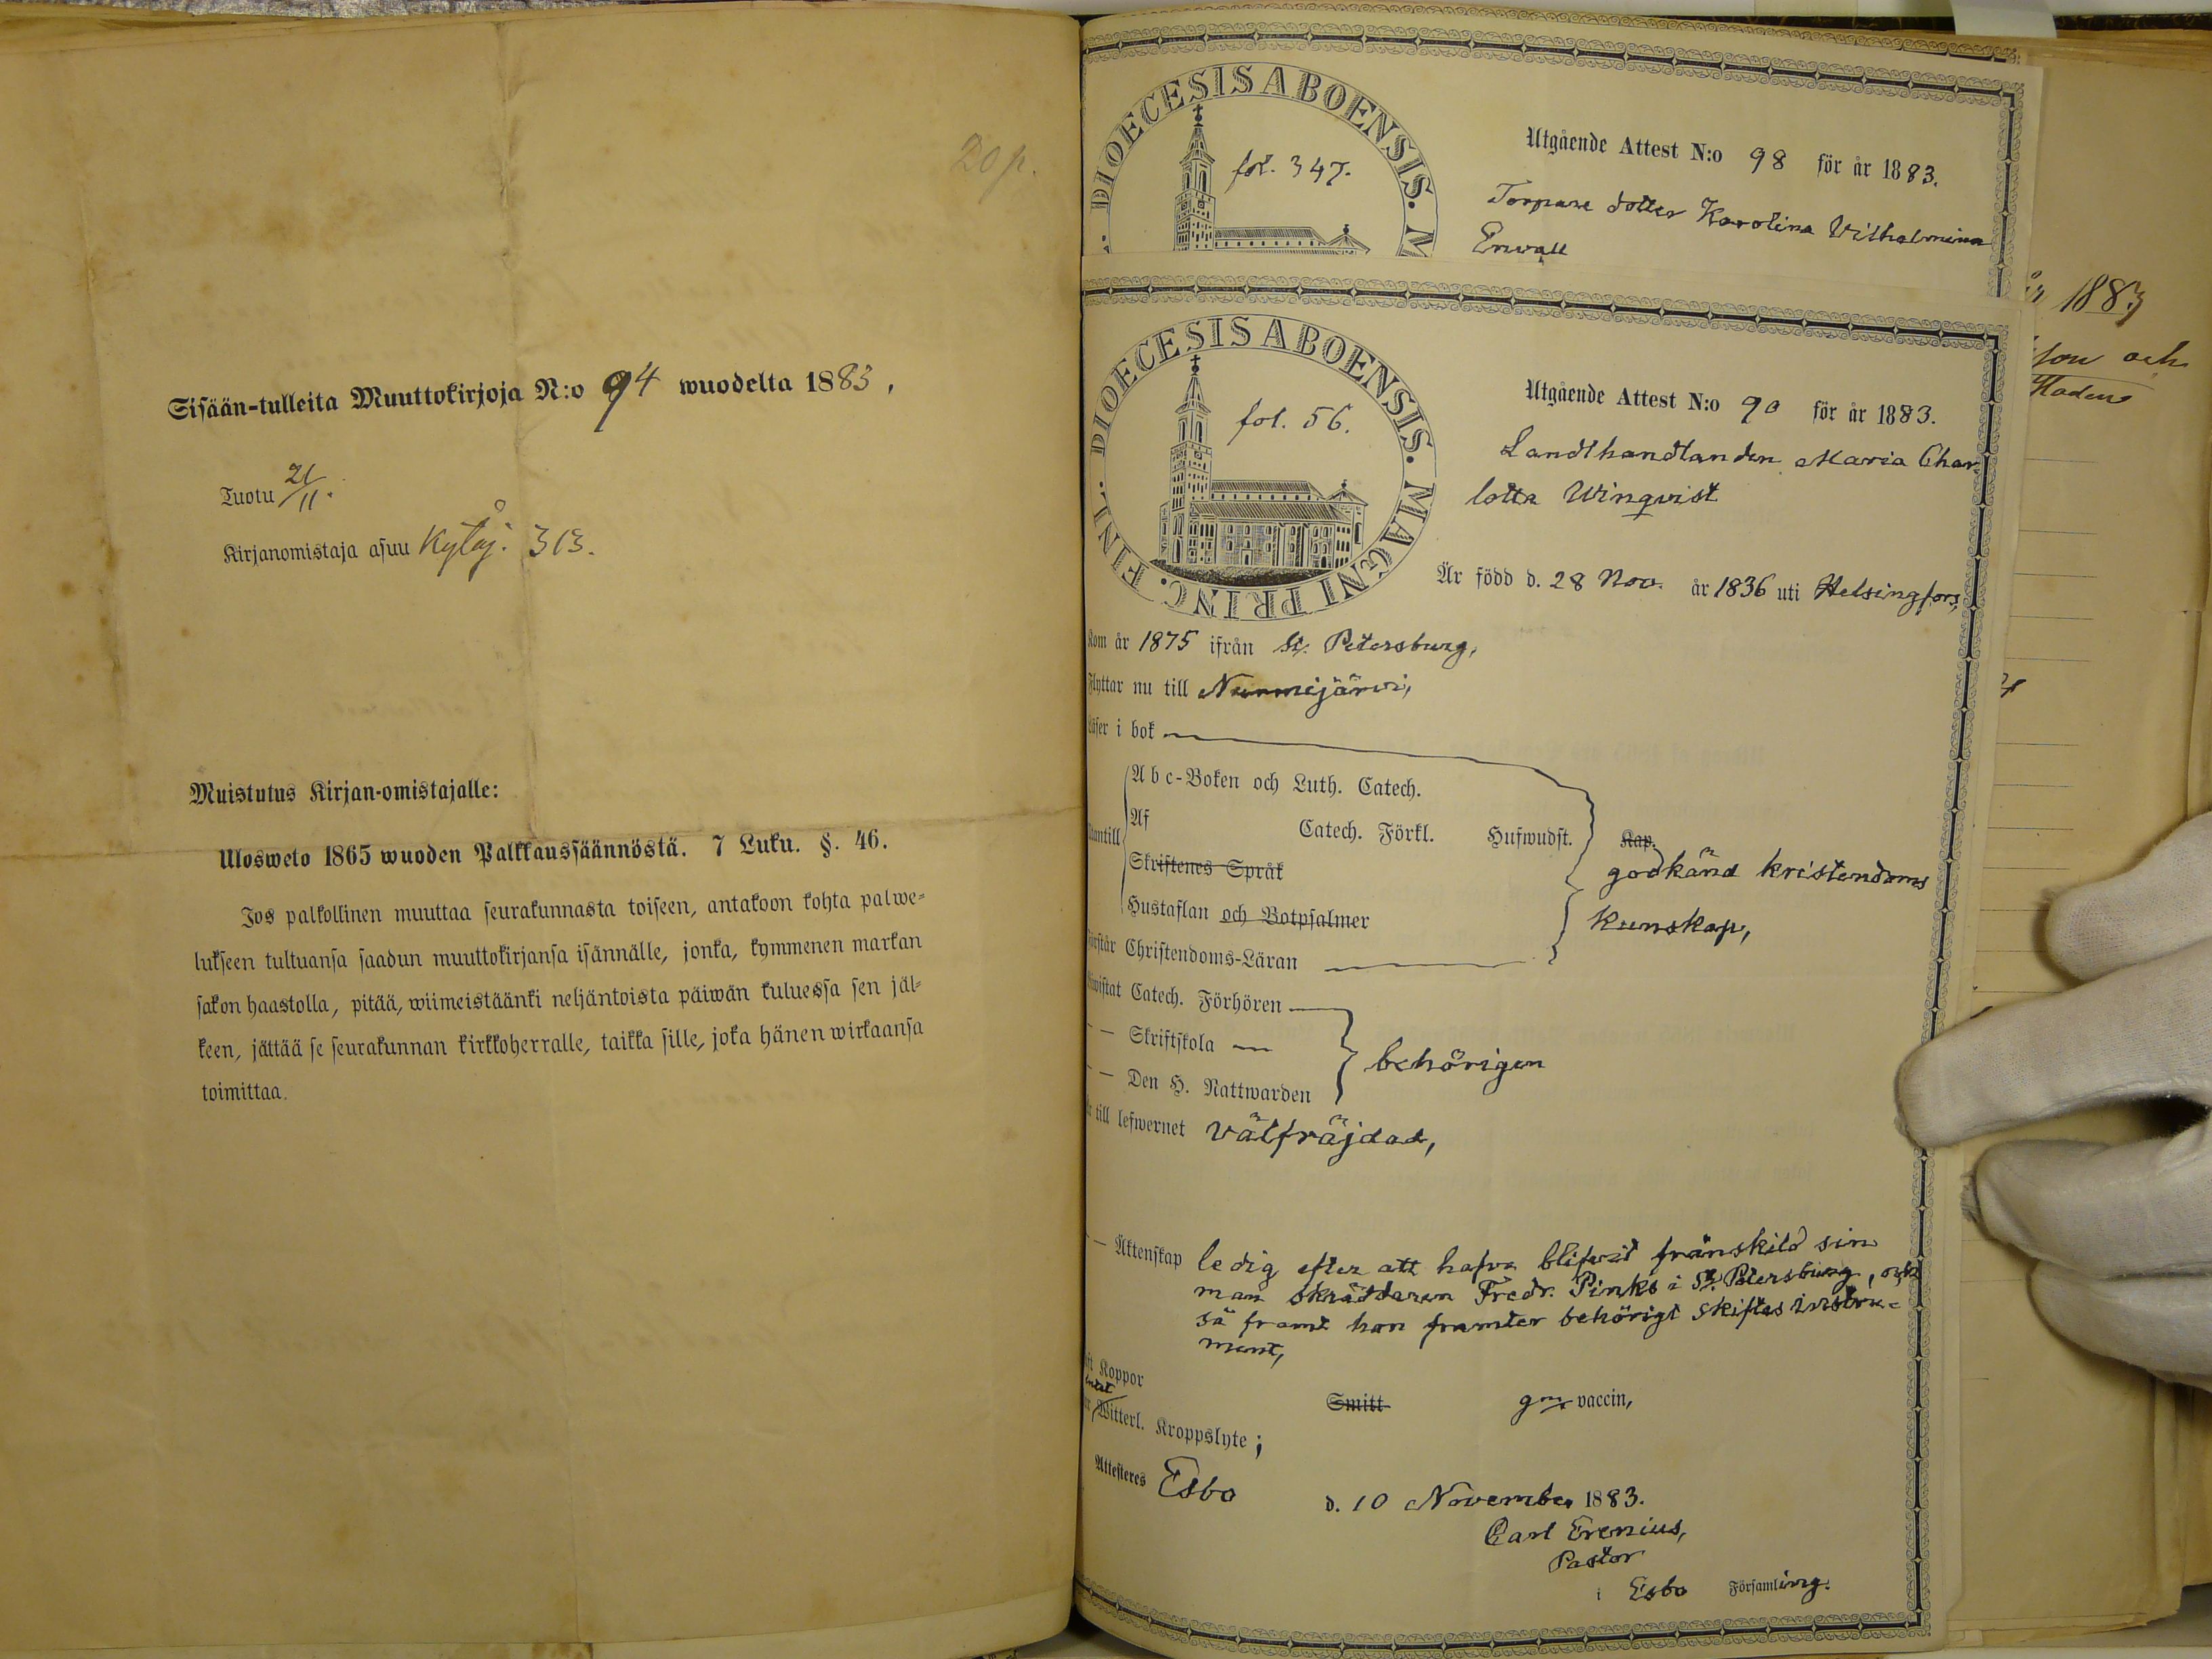 20 p.
Sisään-tulleita Muuttokirjoja N:o 94 wuodelta 1883.
Tuotu 21/11.
Kirjanomistaja asuu Kytåj. 313.
Muistutus Kirjan-omistajalle:
Ulosweto 1865 wuoden Palkkaussäännöstä. 7 Luku. §. 46.
Jos palkollinen muuttaa seurakunnasta toiseen, antakoon kohta palwe-
lukseen tultuansa saadun muuttokirjansa isännälle, jonka, kymmenen markan
sakon haastolla, pitää, wiimeistäänki neljäntoista päiwän kuluessa sen jäl-
keen, jättää se seurakunnan kirkkoherralle, taikka sille, joka hänen wirkaansa
toimittaa.
DIOECESIS ABOENSIS. M
fol. 347.
Utgående Attest N:o 98 för år 1883.
Torpare dotter Karolina Vilhelmina
Enwall
DIOECESIS ABOENSIS. MAGNI PRINC. FINL.
fol. 56.
Utgående Attest N:o 90 för år 1883.
Landthandlanden Maria Char-
lotta Winqvist
Är född d. 28 Nov. år 1836 uti Helsingfors,
Kom år 1875 ifrån St. Petersburg,
Flyttar nu till Nurmijärvi,
Läser i bok
Abc-Boken och Luth. Catech.
Af Catech. Förkl. Hufwudst. Kap.
Skriftenes Språk
godkänd kristendoms
Hustaflan och Botpsalmer
kunskap,
Förstår Christendoms-Läran
Catech. Förhören
— — Skriftskola
behörigen
— — Den H. Nattwarden
till lefwernet välfräjdad,
— — Äktenskap ledig efter att hafva blifvit frånskild sin
man skräddaren Fredr. Pinks i St. Petersburg, och
så framt hon framter behörigt skiftes instru-
ment,
Koppor
Smitt
gm vaccin,
Witterl. Kroppslyte;
Attesteres Esbo d. 10 November 1883.
Carl Erenius,
Pastor
i Esbo Församling.
år 1883
son och